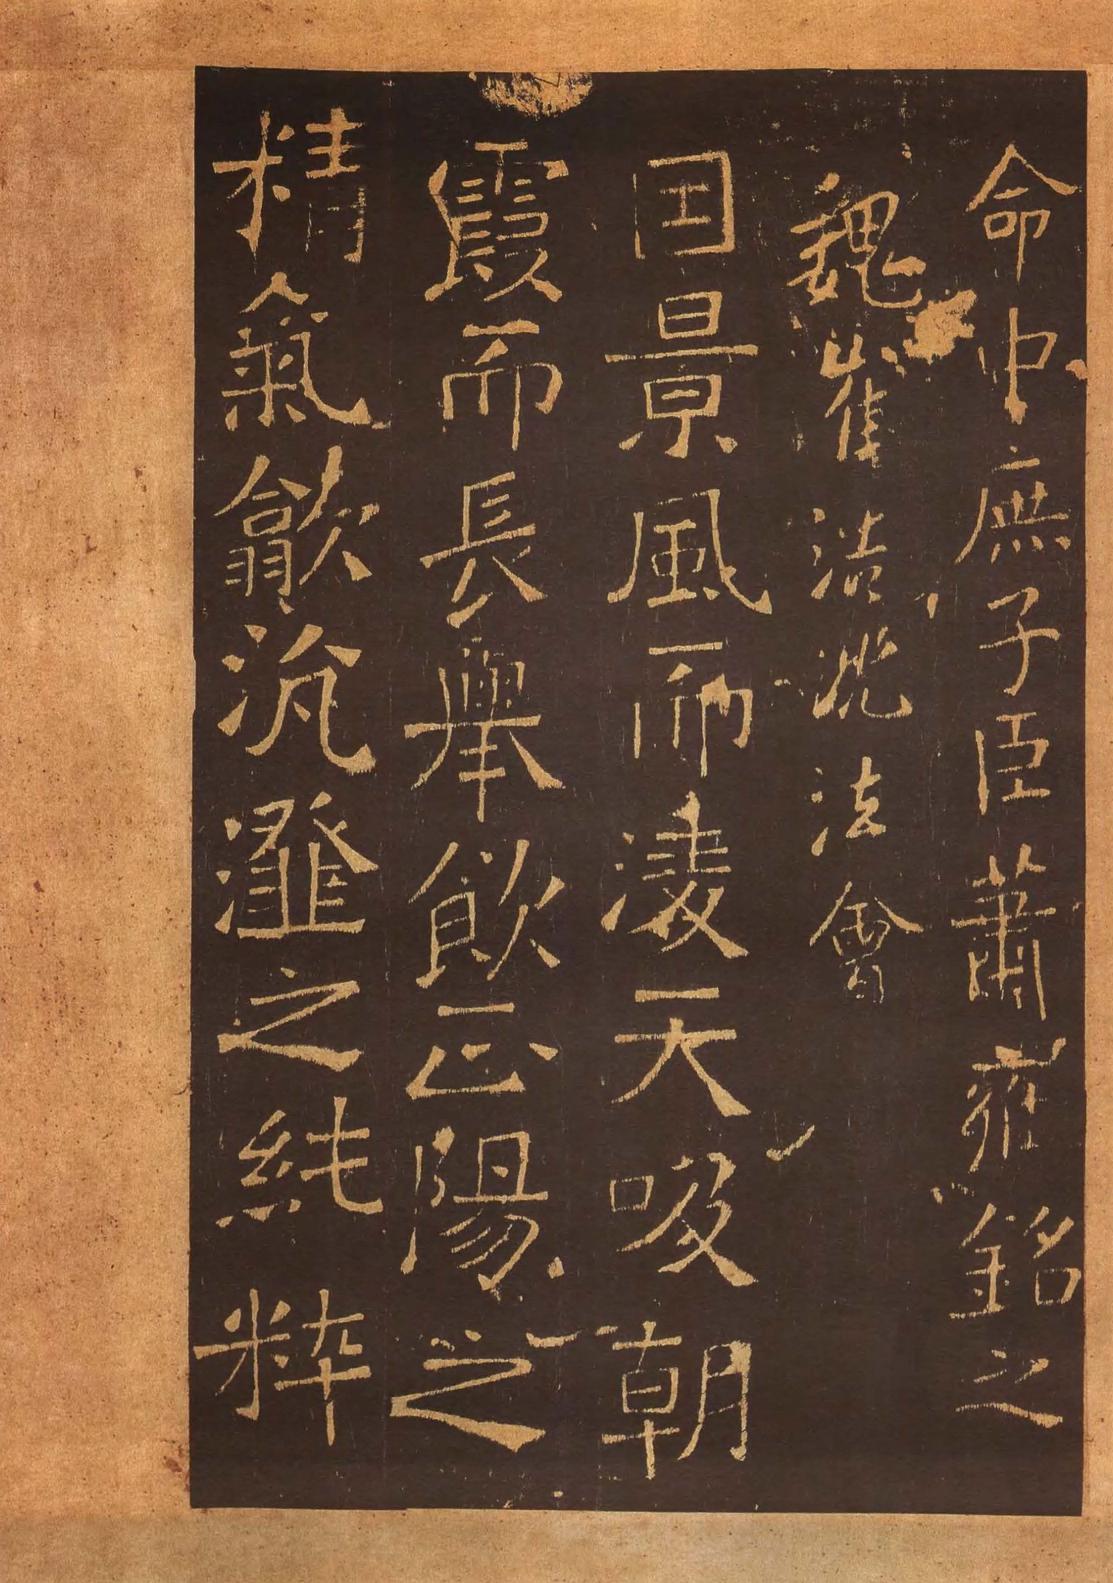 命中庶子臣蕭雍銘之
魏崔浩法會
因景風而淩天吸朝
霞而長舉飲正陽之
精氣歙沆瀣之純粹